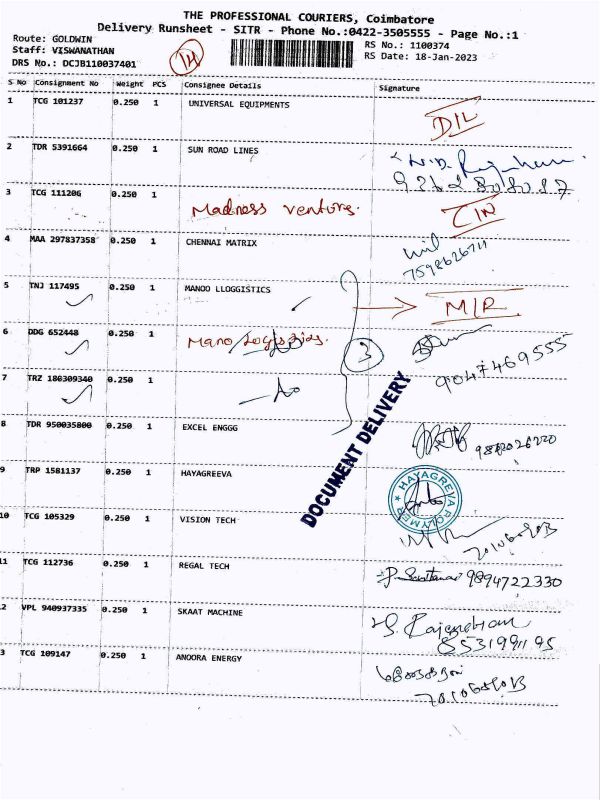 THE PROFESSIONAL COURIERS, Coimbatore
Delivery Runsheet - SITR - Phone No.:0422-3505555 - Page No.:1
Route: GOLDWIN
Staff: VISWANATHAN
DRS No.: DCJB110037401
14
RS No.: 1100374
RS Date: 18-Jan-2023
S No Consignment No Weight PCS Consignee Details Signature
1 TCG 101237 0.250 1 UNIVERSAL EQUIPMENTS D/L
2 TDR 5391664 0.250 1 SUN ROAD LINES
3 TCG 111206 0.250 1 Madness venture.
4 MAA 297837358 0.250 1 CHENNAI MATRIX
7598626711
5 TNJ 117495 0.250 1 MANOO LLOGGISTICS M/R
6 DDG 652448 0.250 1 Mano Logistics.
3
9047469555
7 TRZ 180309340 0.250 1
DOCUMENT DELIVERY
8 TDR 950035800 0.250 1 EXCEL ENGGG
9 TRP 1581137 0.250 1 HAYAGREEVA
HAYAGREEVA POLYMER
10 TCG 105329 0.250 1 VISION TECH
11 TCG 112736 0.250 1 REGAL TECH 9894722330
2 VPL 940937335 0.250 1 SKAAT MACHINE
8531999195
3 TCG 109147 0.250 1 ANOORA ENERGY